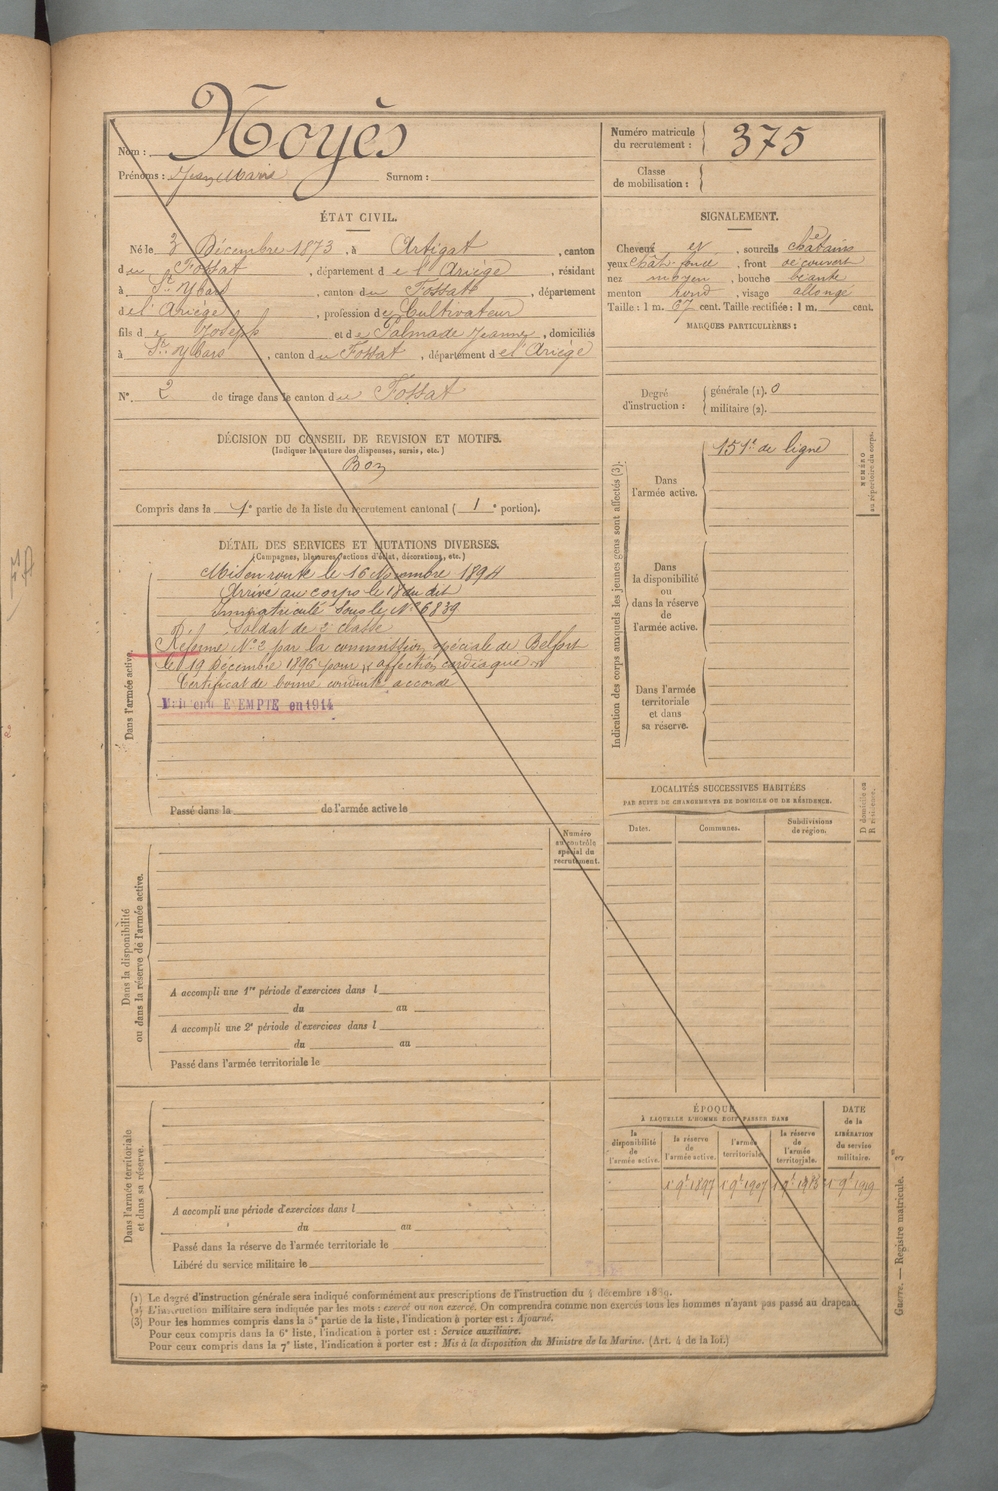 Nom : Noyès
Prénoms : Jean Marie Surnom :
Numéro matricule du recrutement : 375
Classe de mobilisation :
ÉTAT CIVIL.
Né le 3 Décembre 1873, à Artigat, canton
du Fossat, département de l'Ariège, résidant
à St Ybars, canton du Fossat, département
de l'Ariège, profession de Cultivateur
fils de Joseph et de Palmade Jeanne, domiciliés
à St Ybars, canton du Fossat, département de l'Ariège
N° 2 de tirage dans le canton du Fossat
DÉCISION DU CONSEIL DE REVISION ET MOTIFS.
(Indiquer la nature des dispenses, sursis, etc.)
Bon
Compris dans la 1e partie de la liste du recrutement cantonal ( 1e portion).
DÉTAIL DES SERVICES ET MUTATIONS DIVERSES.
(Campagnes, blessures, actions d'éclat, décorations, etc.)
Dans l'armée active.
Mis en route le 16 Novembre 1894
Arrivé au corps le 18 du dit
Immatriculé sous le N° 6839
Soldat de 2e classe
Réformé N° 2 par la commission spéciale de Belfort
le 19 Décembre 1896 pour "affection cardiaque"
Certificat de bonne conduite accordé
Maintenu EXEMPTÉ en 1914
Passé dans la de l'armée active le
Numéro au contrôle spécial du recrutement.
Dans la disponibilité
ou dans la réserve de l'armée active.
A accompli une 1re période d'exercices dans l
du au
A accompli une 2e période d'exercices dans l
du au
Passé dans l'armée territoriale le
Dans l'armée territoriale
et dans sa réserve.
A accompli une période d'exercices dans l
du au
Passé dans la réserve de l'armée territoriale le
Libéré du service militaire le
SIGNALEMENT.
Cheveux et, sourcils châtains
yeux chât. foncé, front découvert
nez moyen, bouche béante
menton rond, visage allongé
Taille : 1 m. 67 cent. Taille rectifiée : 1 m. cent.
MARQUES PARTICULIÈRES :
Degré d'instruction :
générale (1). 0
militaire (2).
Indication des corps auxquels les jeunes gens sont affectés (3).
Dans l'armée active.
151e de ligne
NUMÉRO
au répertoire du corps.
Dans la disponibilité
ou
dans la réserve
de
l'armée active.
Dans l'armée
territoriale
et dans
sa réserve.
LOCALITÉS SUCCESSIVES HABITÉES
PAR SUITE DE CHANGEMENTS DE DOMICILE OU DE RÉSIDENCE.
Dates. Communes. Subdivisions de région.
D domicile ou
R résidence.
ÉPOQUE
À LAQUELLE L'HOMME DOIT PASSER DANS
la disponibilité de l'armée active.
la réserve de l'armée active.
l'armée territoriale.
la réserve de l'armée territoriale.
DATE de la LIBÉRATION du service militaire.
1 9e 1897 1 9e 1907 1 9e 1913 1 9e 1919
(1) Le degré d'instruction générale sera indiqué conformément aux prescriptions de l'instruction du 4 décembre 1889.
(2) L'instruction militaire sera indiquée par les mots : exercé ou non exercé. On comprendra comme non exercés tous les hommes n'ayant pas passé au drapeau.
(3) Pour les hommes compris dans la 5e partie de la liste, l'indication à porter est : Ajourné.
Pour ceux compris dans la 6e liste, l'indication à porter est : Service auxiliaire.
Pour ceux compris dans la 7e liste, l'indication à porter est : Mis à la disposition du Ministre de la Marine. (Art. 4 de la loi.)
Guerre. — Registre matricule. 3